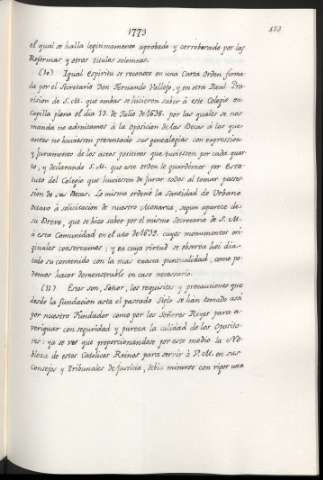 1773
el qual se halla legitimamente aprobado y corroborado por las
Reformas y otros titulos solemnes.
(10) Igual Espiritu se reconoce en una Carta Orden firma-
da por el Secretario Don Fernando Vallejo, y en otra Real Pro-
vision de S. M. que ambas se hicieron saber à este Colegio en
Capilla plena el dia 17. de Julio de 1638. por las quales se nos
manda no admitamos à la oposicion de las Becas à los que
antes no huvieren presentado sus genealogias con expresion
y Juramentos de los actos positivos que tuviesen por cada quar-
to, y declarando S. M. que este orden le guardemos por Esta-
tuto del Colegio que huviesen de Jurar todos al tomar pose-
sion de sus Becas. Lo mismo ordenò la Santidad de Urbano
octavo à solicitacion de nuestro Monarca, segun aparece de
su Breve, que se hizo saber por el mismo Secretario de S. M.
à esta Comunidad en el año de 1639. cuyos monumentos ori-
ginales conservamos; y en cuya virtud se observa hoi dia
todo su contenido con la mas exacta puntualidad, como po-
demos hacer demonstrable en caso necesario.
(11) Estos son, Señor, los requisitos y precauciones que
desde la fundacion asta el pasado Siglo se han tomado asi
por nuestro Fundador como por los Señores Reyes para a-
veriguar con seguridad y pureza la calidad de los Oposito-
res: ya se ve que proporcionandose por este medio la No-
bleza de estos Catolicos Reinos para servir à V. M. en sus
Consejos y Tribunales de Justicia, debia mirarse con rigor una